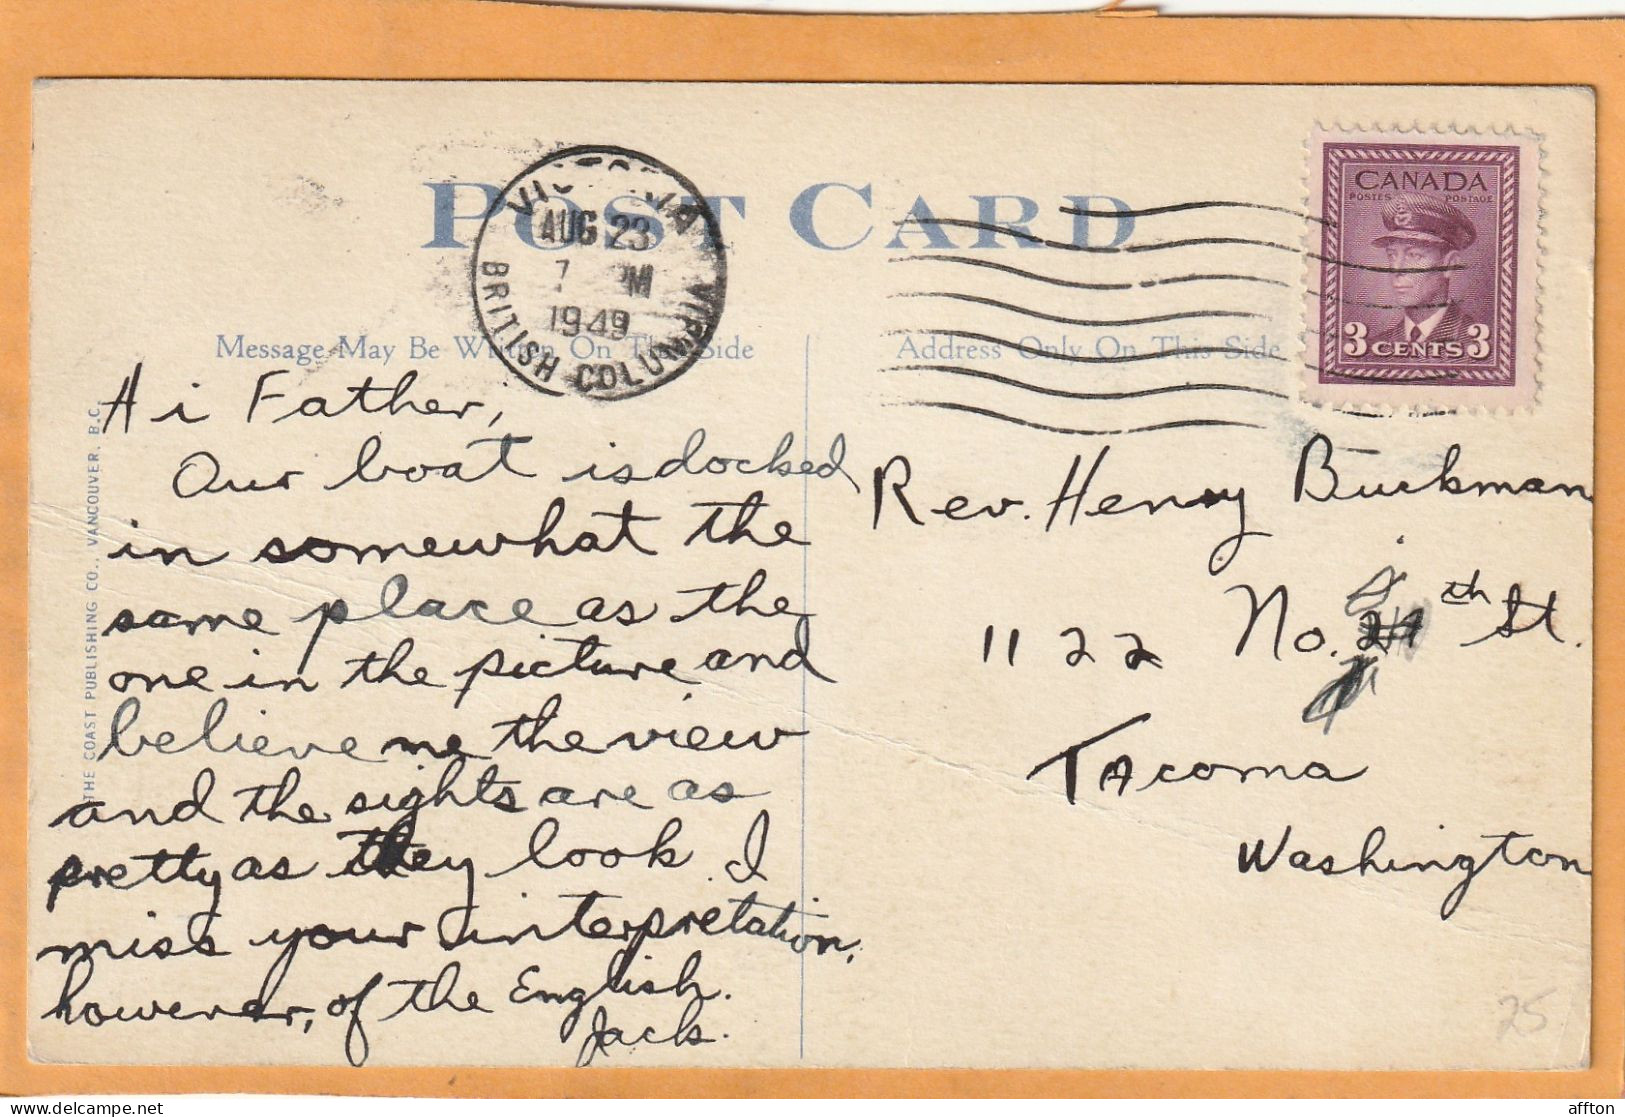 POST CARD
VICTORIA
AUG 23
7 PM
1949
BRITISH COLUMBIA
CANADA
POSTES POSTAGE
3 CENTS 3
Message May Be Written On This Side
Address Only On This Side
THE COAST PUBLISHING CO., VANCOUVER, B.C.
Hi Father,
Our boat is docked
in somewhat the
same place as the
one in the picture and
believe me the view
and the sights are as
pretty as they look. I
miss your interpretation,
however, of the English.
Jack.
Rev. Henry Buckman
1122 No. th St.
Tacoma
Washington
25
affton